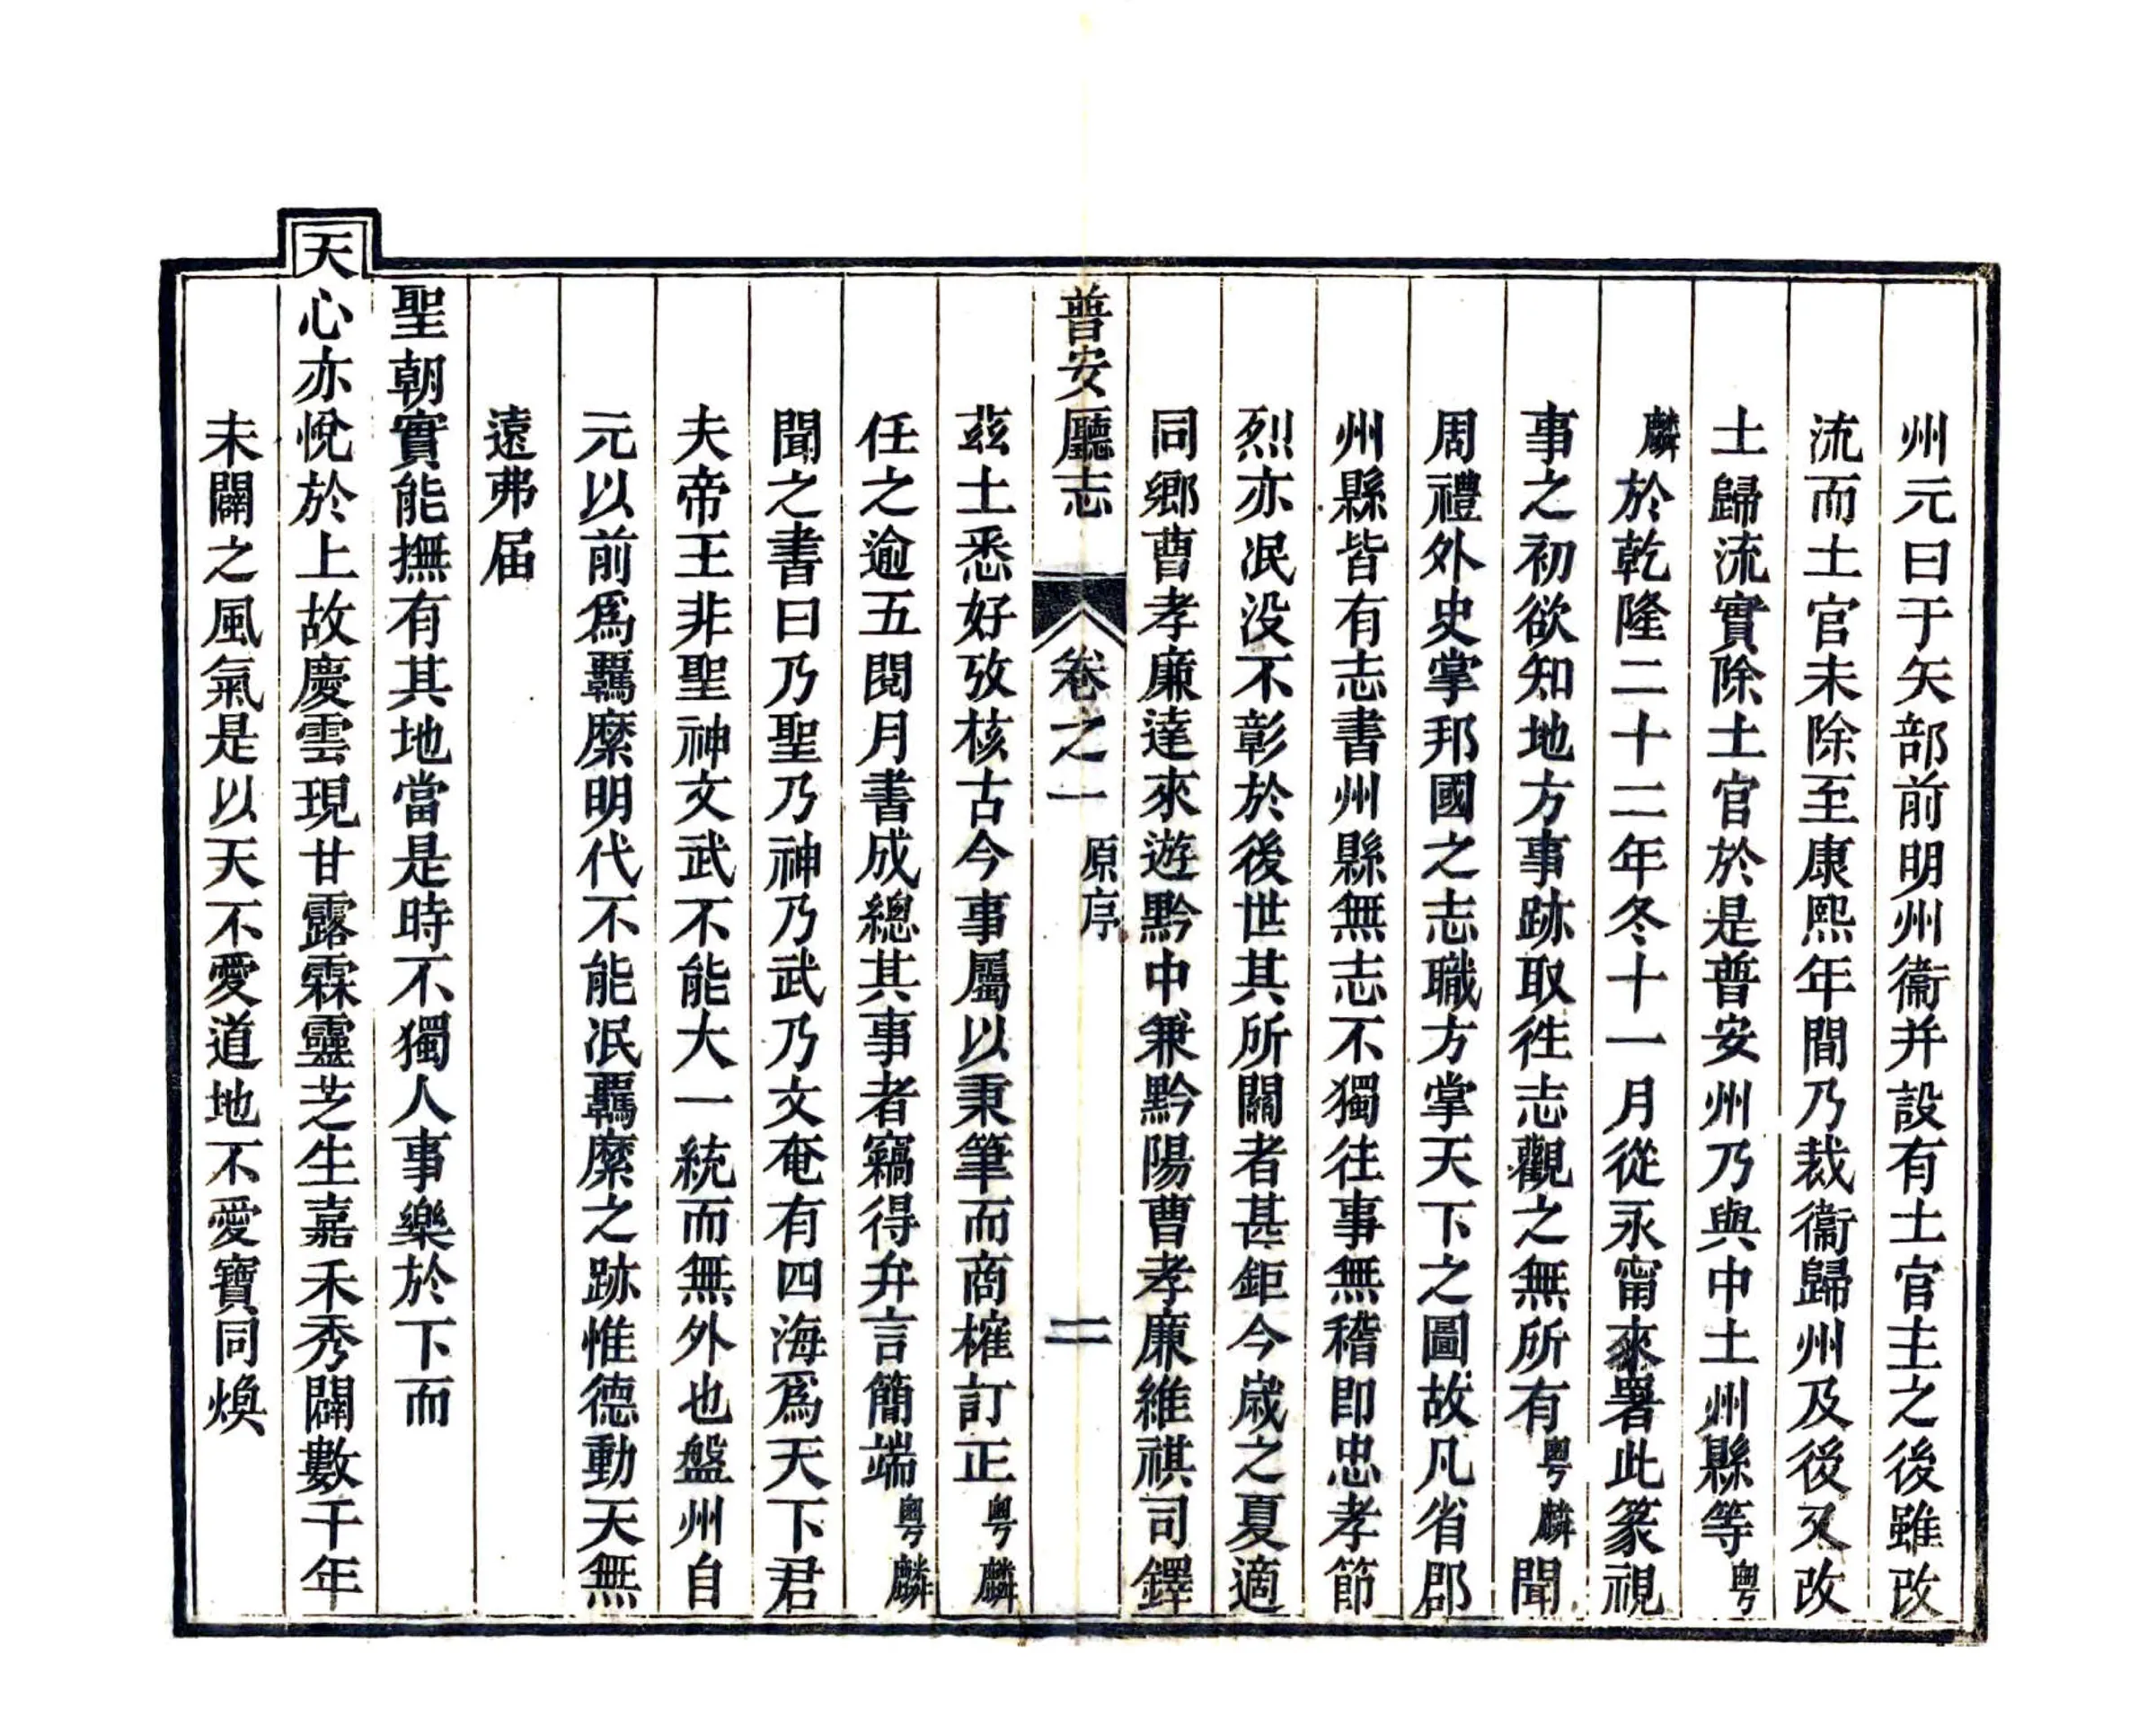 州元曰于矢部前明州衞并設有土官主之後雖改
流而土官未除至康熙年間乃裁衞歸州及後又改
土歸流實除土官於是普安州乃與中土州縣等粤
麟於乾隆二十二年冬十一月從永甯來署此篆視
事之初欲知地方事跡取徃志觀之無所有粤麟聞
周禮外史掌邦國之志職方掌天下之圖故凡省郡
州縣皆有志書州縣無志不獨往事無稽即忠孝節
烈亦泯没不彰於後世其所關者甚鉅今歲之夏適
同鄉曹孝廉達來遊黔中兼黔陽曹孝廉維祺司鐸
普安廳志 卷之一 原序 二
茲土悉好攷核古今事屬以秉筆而商榷訂正粤麟
任之逾五閱月書成總其事者竊得弁言簡端粤麟
聞之書曰乃聖乃神乃武乃文奄有四海爲天下君
夫帝王非聖神文武不能大一統而無外也盤州自
元以前爲羈縻明代不能泯羈縻之跡惟德動天無
遠弗届
聖朝實能撫有其地當是時不獨人事樂於下而
天心亦悅於上故慶雲現甘露霖靈芝生嘉禾秀闢數千年
未闢之風氣是以天不愛道地不愛寶同煥